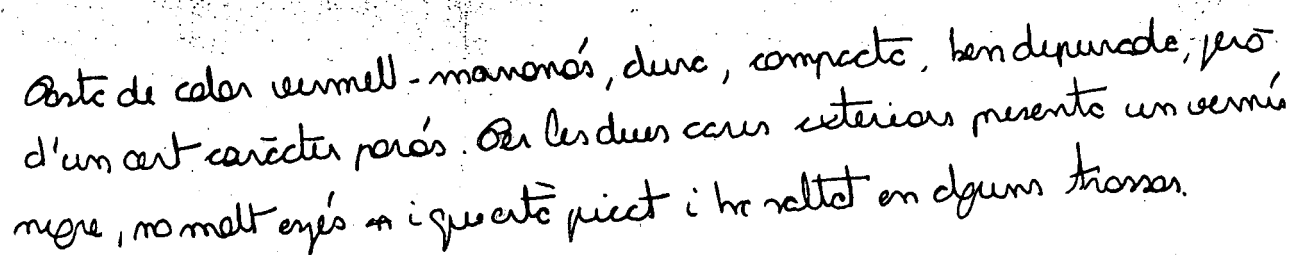 Pasta de color vermell-marronós, dura, compacta, ben depurada, però
d'un cert caràcter porós. Per les dues cares exteriors presenta un vernís
negre, no molt espés i que està picat i ha saltat en alguns trossos.